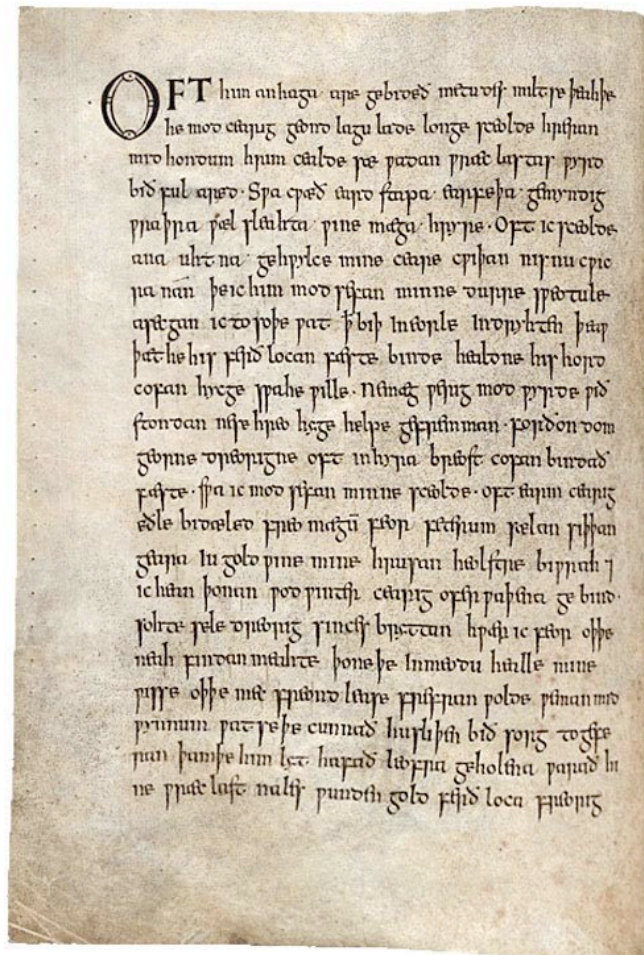 OFT him anhaga · are gebideð metudes miltse þeahþe
he mod cearig geond lagu lade longe sceolde hreran
mid hondum hrim cealde sæ ƿadan ƿræc lastas ƿyrd
bið ful aræd · Sƿa cƿæð eard stapa · earfeþa · gemyndig
ƿraþra ƿæl sleahta · ƿine mæga · hryre · Oft ic sceolde
ana uhtna · gehƿylce mine ceare cƿiþan nis nu cƿic
ra nan þe ic him mod sefan minne durre sƿeotule
asecgan ic to soþe ƿat ꝥ biþ in eorle indryhten þeaƿ
þæt he his ferð locan fæste binde healdne his hord
cofan hycge sƿa he ƿille · Ne mæg ƿerig mod ƿyrde ƿið
stondan ne se hreo hyge helpe gefremman · forðon dom
georne dreorigne oft in hyra breost cofan bindað
fæste · sƿa ic mod sefan minne sceolde · oft earm cearig
eðle bidæled freo mægū feor feterum sælan siþþan
geara iu gold ƿine mine hrusan heolster biƿrah ⁊
ic hean þonan ƿod ƿinter cearig ofer ƿaþena gebind ·
sohte sele dreorig sinces bryttan hƿær ic feor oþþe
neah findan meahte þone þe in meodu healle mine
ƿisse oþþe mec freond lease frefran ƿolde ƿeman mid
ƿynnum ƿat se þe cunnað hu sliþen bið sorg to gefe
ran þam þe him lyt hafað leofra geholena ƿarað hi
ne ƿræc last nales ƿunden gold ferð loca freorig